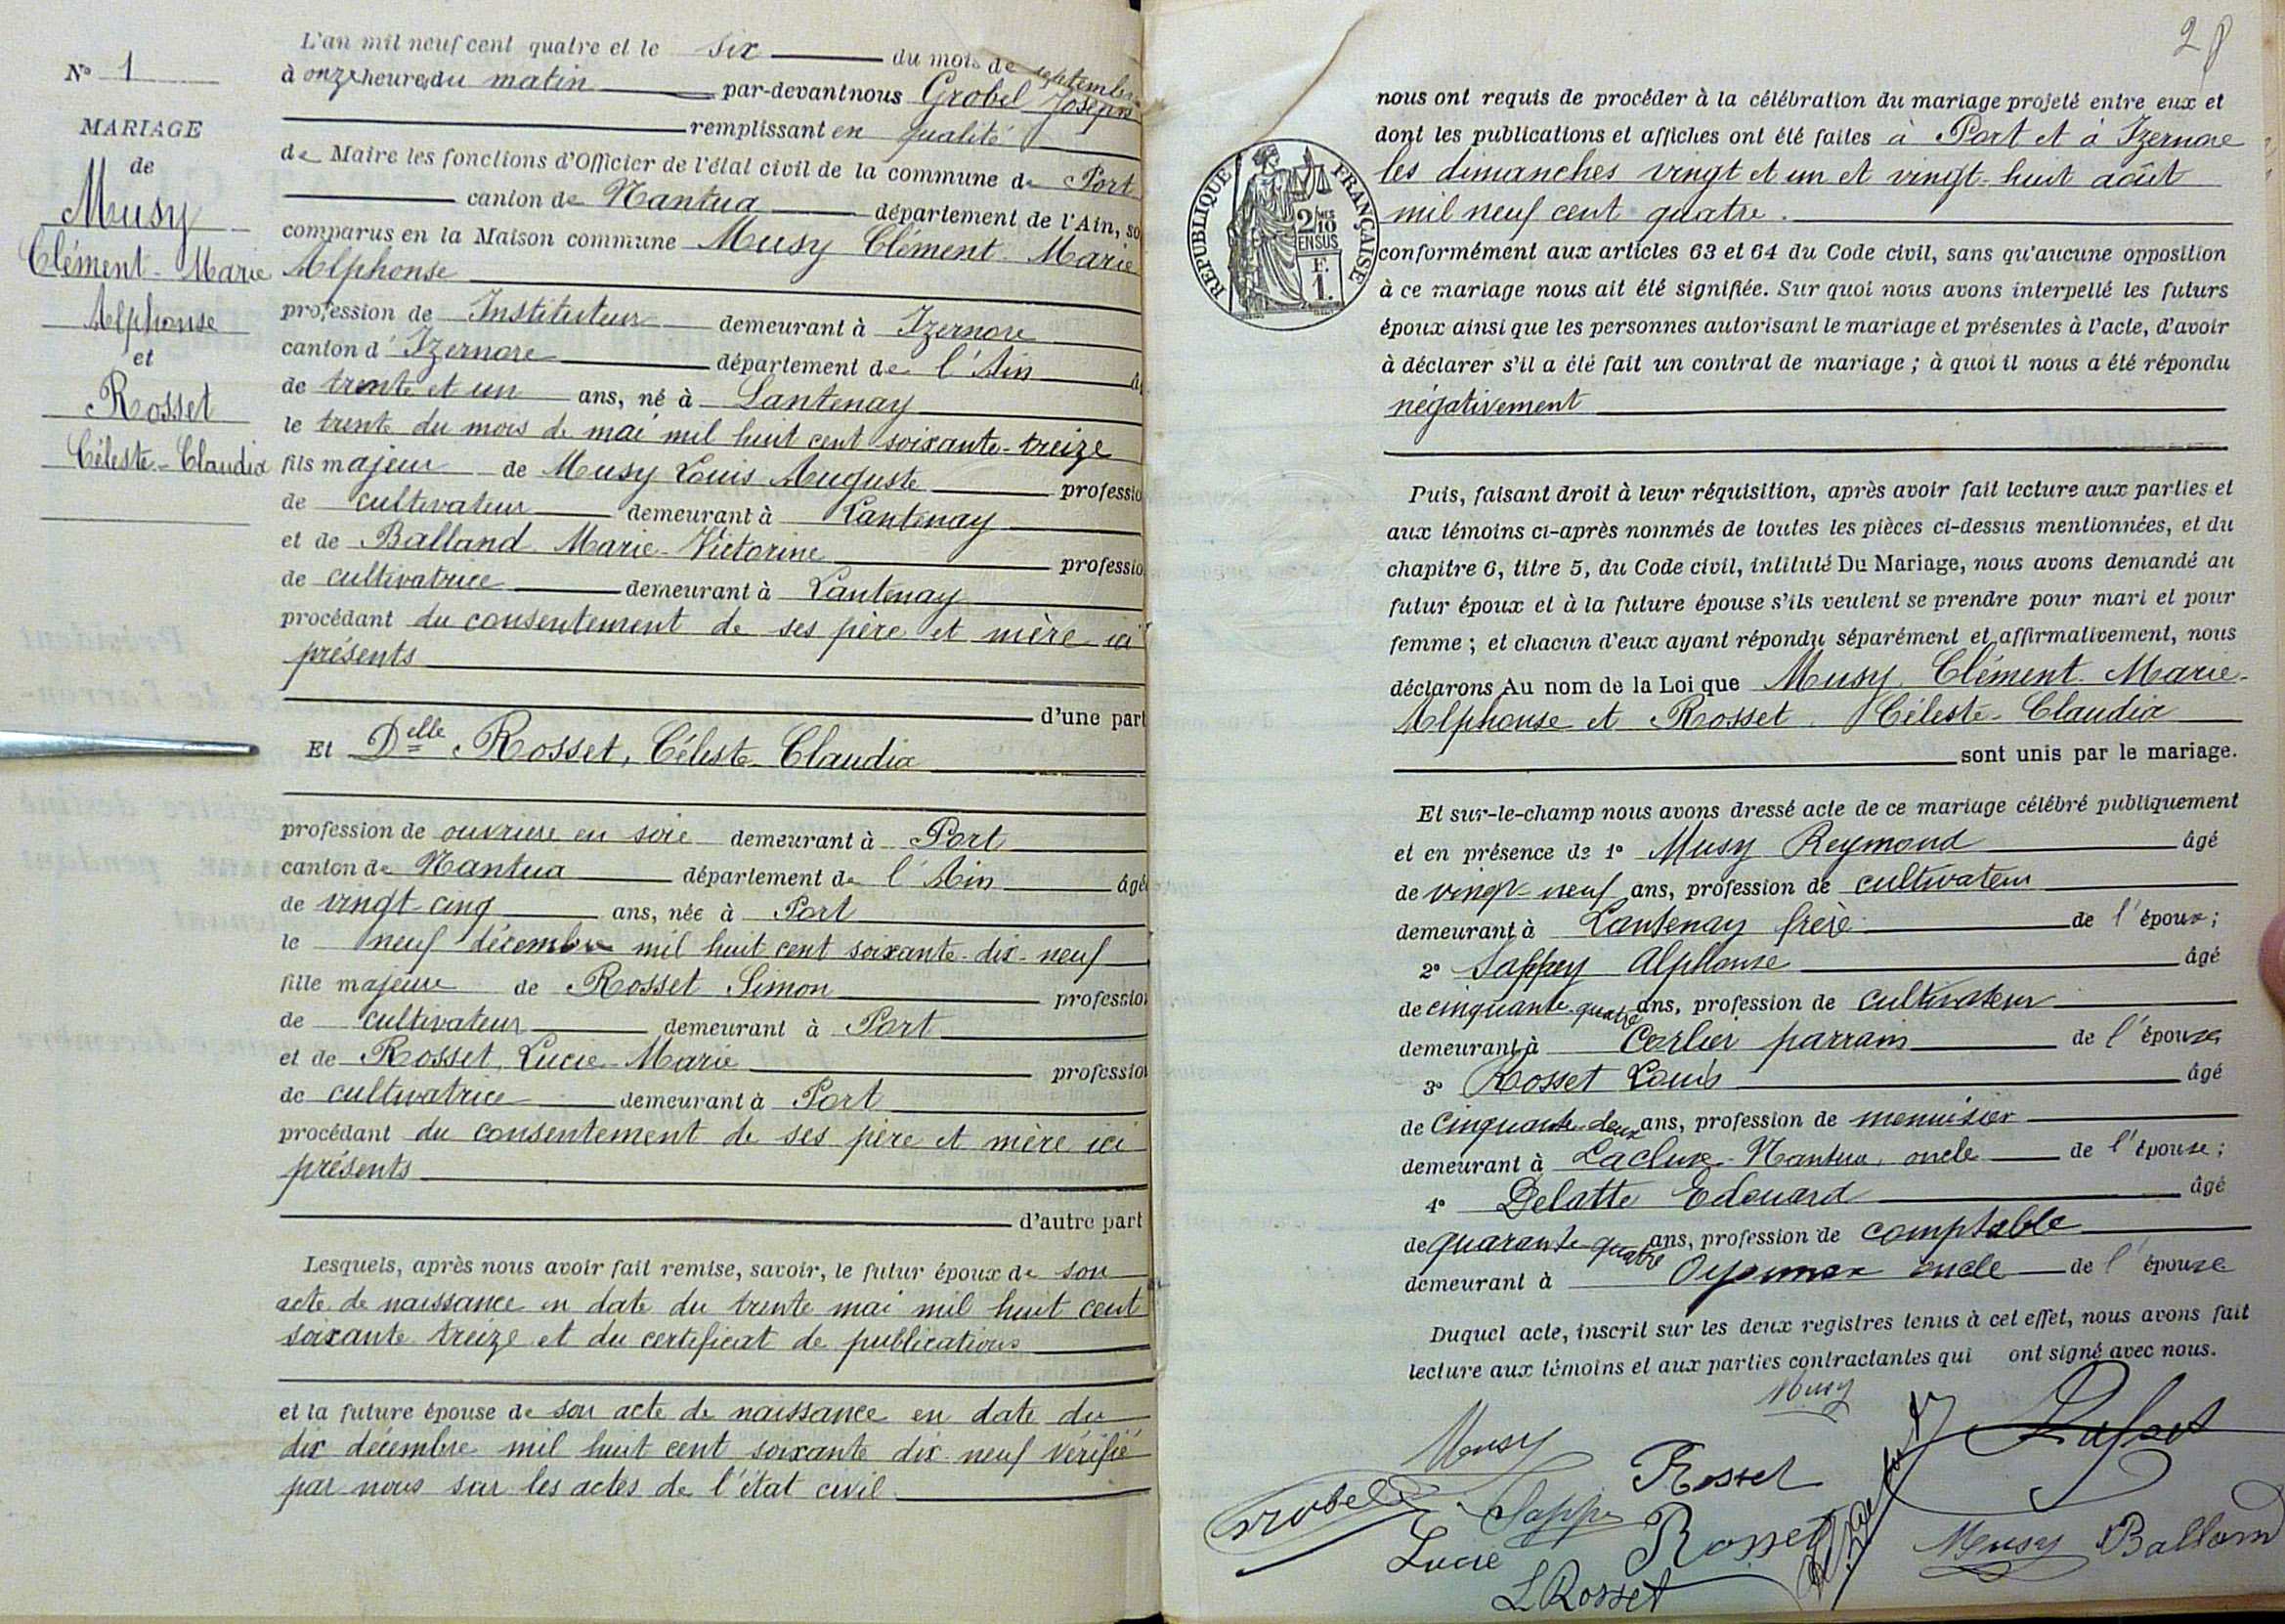 N° 1
MARIAGE
de
Musy
Clément-Marie
Alphonse
et
Rosset
Céleste-Claudia
L'an mil neuf cent quatre et le six du mois de septembre
à onze heures du matin par-devant nous Grobel Joseph
remplissant en qualité
de Maire les fonctions d'Officier de l'état civil de la commune de Port
canton de Nantua département de l'Ain, so
comparus en la Maison commune Musy Clément-Marie
Alphonse
profession de Instituteur demeurant à Izernore
canton d'Izernore département de l'Ain
de trente et un ans, né à Lantenay
le trente du mois de mai mil huit cent soixante-treize
fils majeur de Musy Louis Auguste professio
de cultivateur demeurant à Lantenay
et de Balland Marie-Victorine professio
de cultivatrice demeurant à Lantenay
procédant du consentement de ses père et mère ici
présents
d'une part
Et Delle Rosset, Céleste-Claudia
profession de ouvrière en soie demeurant à Port
canton de Nantua département de l'Ain âgé
de vingt-cinq ans, née à Port
le neuf décembre mil huit cent soixante-dix-neuf
fille majeure de Rosset Simon profession
de cultivateur demeurant à Port
et de Rosset, Lucie-Marie profession
de cultivatrice demeurant à Port
procédant du consentement de ses père et mère ici
présents
d'autre part
Lesquels, après nous avoir fait remise, savoir, le futur époux de son
acte de naissance en date du trente mai mil huit cent
soixante treize et du certificat de publications
et la future épouse de son acte de naissance en date du
dix décembre mil huit cent soixante dix-neuf vérifié
par nous sur les actes de l'état civil
28
REPUBLIQUE FRANÇAISE
2/10 MES
EN SUS
F.
1.
nous ont requis de procéder à la célébration du mariage projeté entre eux et
dont les publications et affiches ont été faites à Port et à Izernore
les dimanches vingt et un et vingt-huit août
mil neuf cent quatre.
conformément aux articles 63 et 64 du Code civil, sans qu'aucune opposition
à ce mariage nous ait été signifiée. Sur quoi nous avons interpellé les futurs
époux ainsi que les personnes autorisant le mariage et présentes à l'acte, d'avoir
à déclarer s'il a été fait un contrat de mariage ; à quoi il nous a été répondu
négativement
Puis, faisant droit à leur réquisition, après avoir fait lecture aux parties et
aux témoins ci-après nommés de toutes les pièces ci-dessus mentionnées, et du
chapitre 6, titre 5, du Code civil, intitulé Du Mariage, nous avons demandé au
futur époux et à la future épouse s'ils veulent se prendre pour mari et pour
femme ; et chacun d'eux ayant répondu séparément et affirmativement, nous
déclarons Au nom de la Loi que Musy, Clément-Marie-
Alphonse et Rosset, Céleste-Claudia
sont unis par le mariage.
Et sur-le-champ nous avons dressé acte de ce mariage célébré publiquement
et en présence de 1° Musy Reymond âgé
de vingt-neuf ans, profession de cultivateur
demeurant à Lantenay frère de l'époux ;
2° Sappey Alphonse âgé
de cinquante-quatre ans, profession de cultivateur
demeurant à Cerlier parrain de l'épouse
3° Rosset Louis âgé
de cinquante-deux ans, profession de menuisier
demeurant à Lacluse-Nantua, oncle de l'épouse ;
4° Delatte Edouard âgé
de quarante-quatre ans, profession de comptable
demeurant à Oyonnax oncle de l'épouse
Duquel acte, inscrit sur les deux registres tenus à cet effet, nous avons fait
lecture aux témoins et aux parties contractantes qui ont signé avec nous.
Musy
Musy
Rosset
Grobel
Sappey
Lucie Rosset
L Rosset
Musy Balland